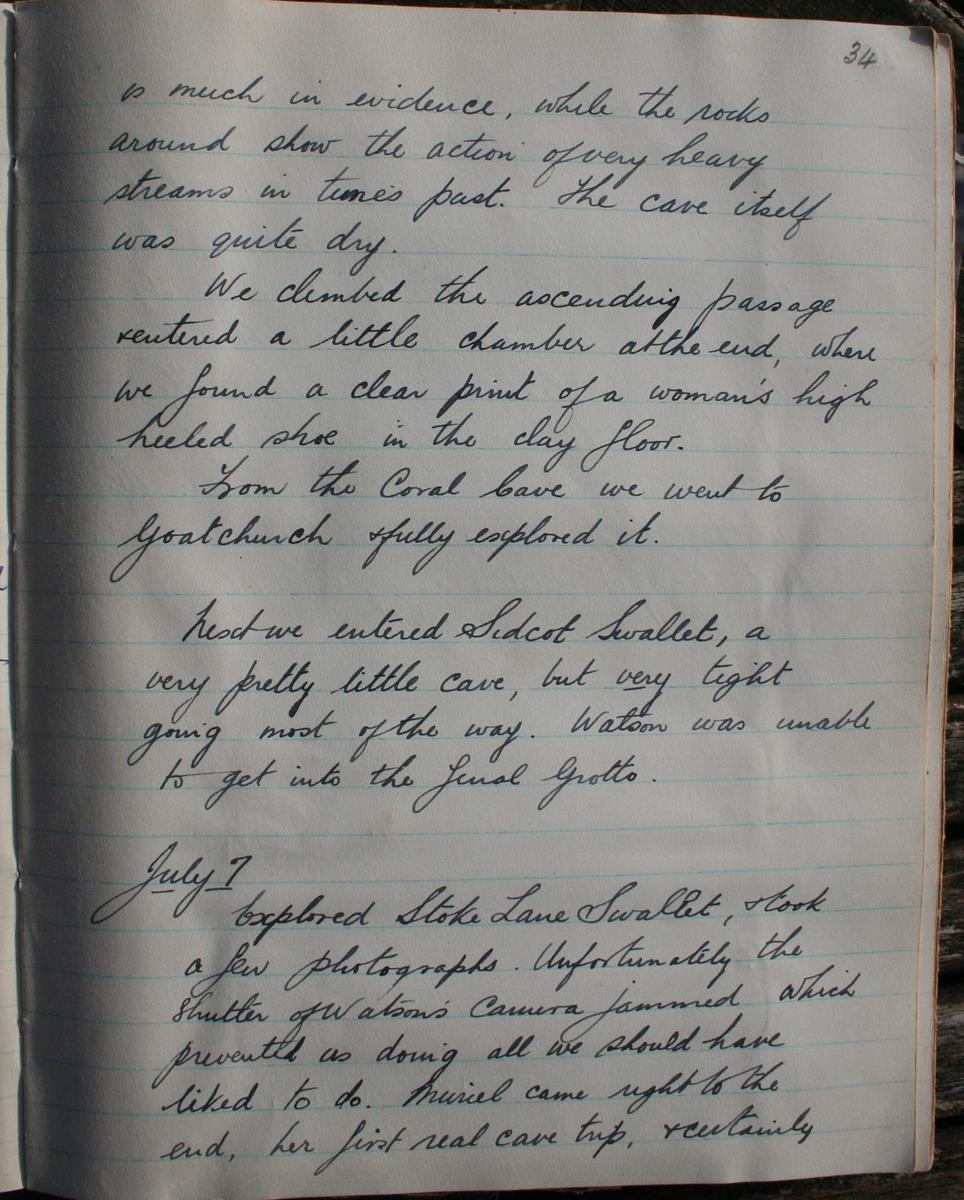 34
is much in evidence, while the rocks
around show the action of very heavy
streams in times past. The cave itself
was quite dry.
We climbed the ascending passage
& entered a little chamber at the end, where
we found a clear print of a woman's high
heeled shoe in the clay floor.
From the Coral Cave we went to
Goatchurch & fully explored it.
Next we entered Sidcot Swallet, a
very pretty little cave, but very tight
going most of the way. Watson was unable
to get into the final Grotto.
July 7
Explored Stoke Lane Swallet, & took
a few photographs. Unfortunately the
shutter of Watson's Camera jammed which
prevented us doing all we should have
liked to do. Muriel came right to the
end, her first real cave trip, & certainly